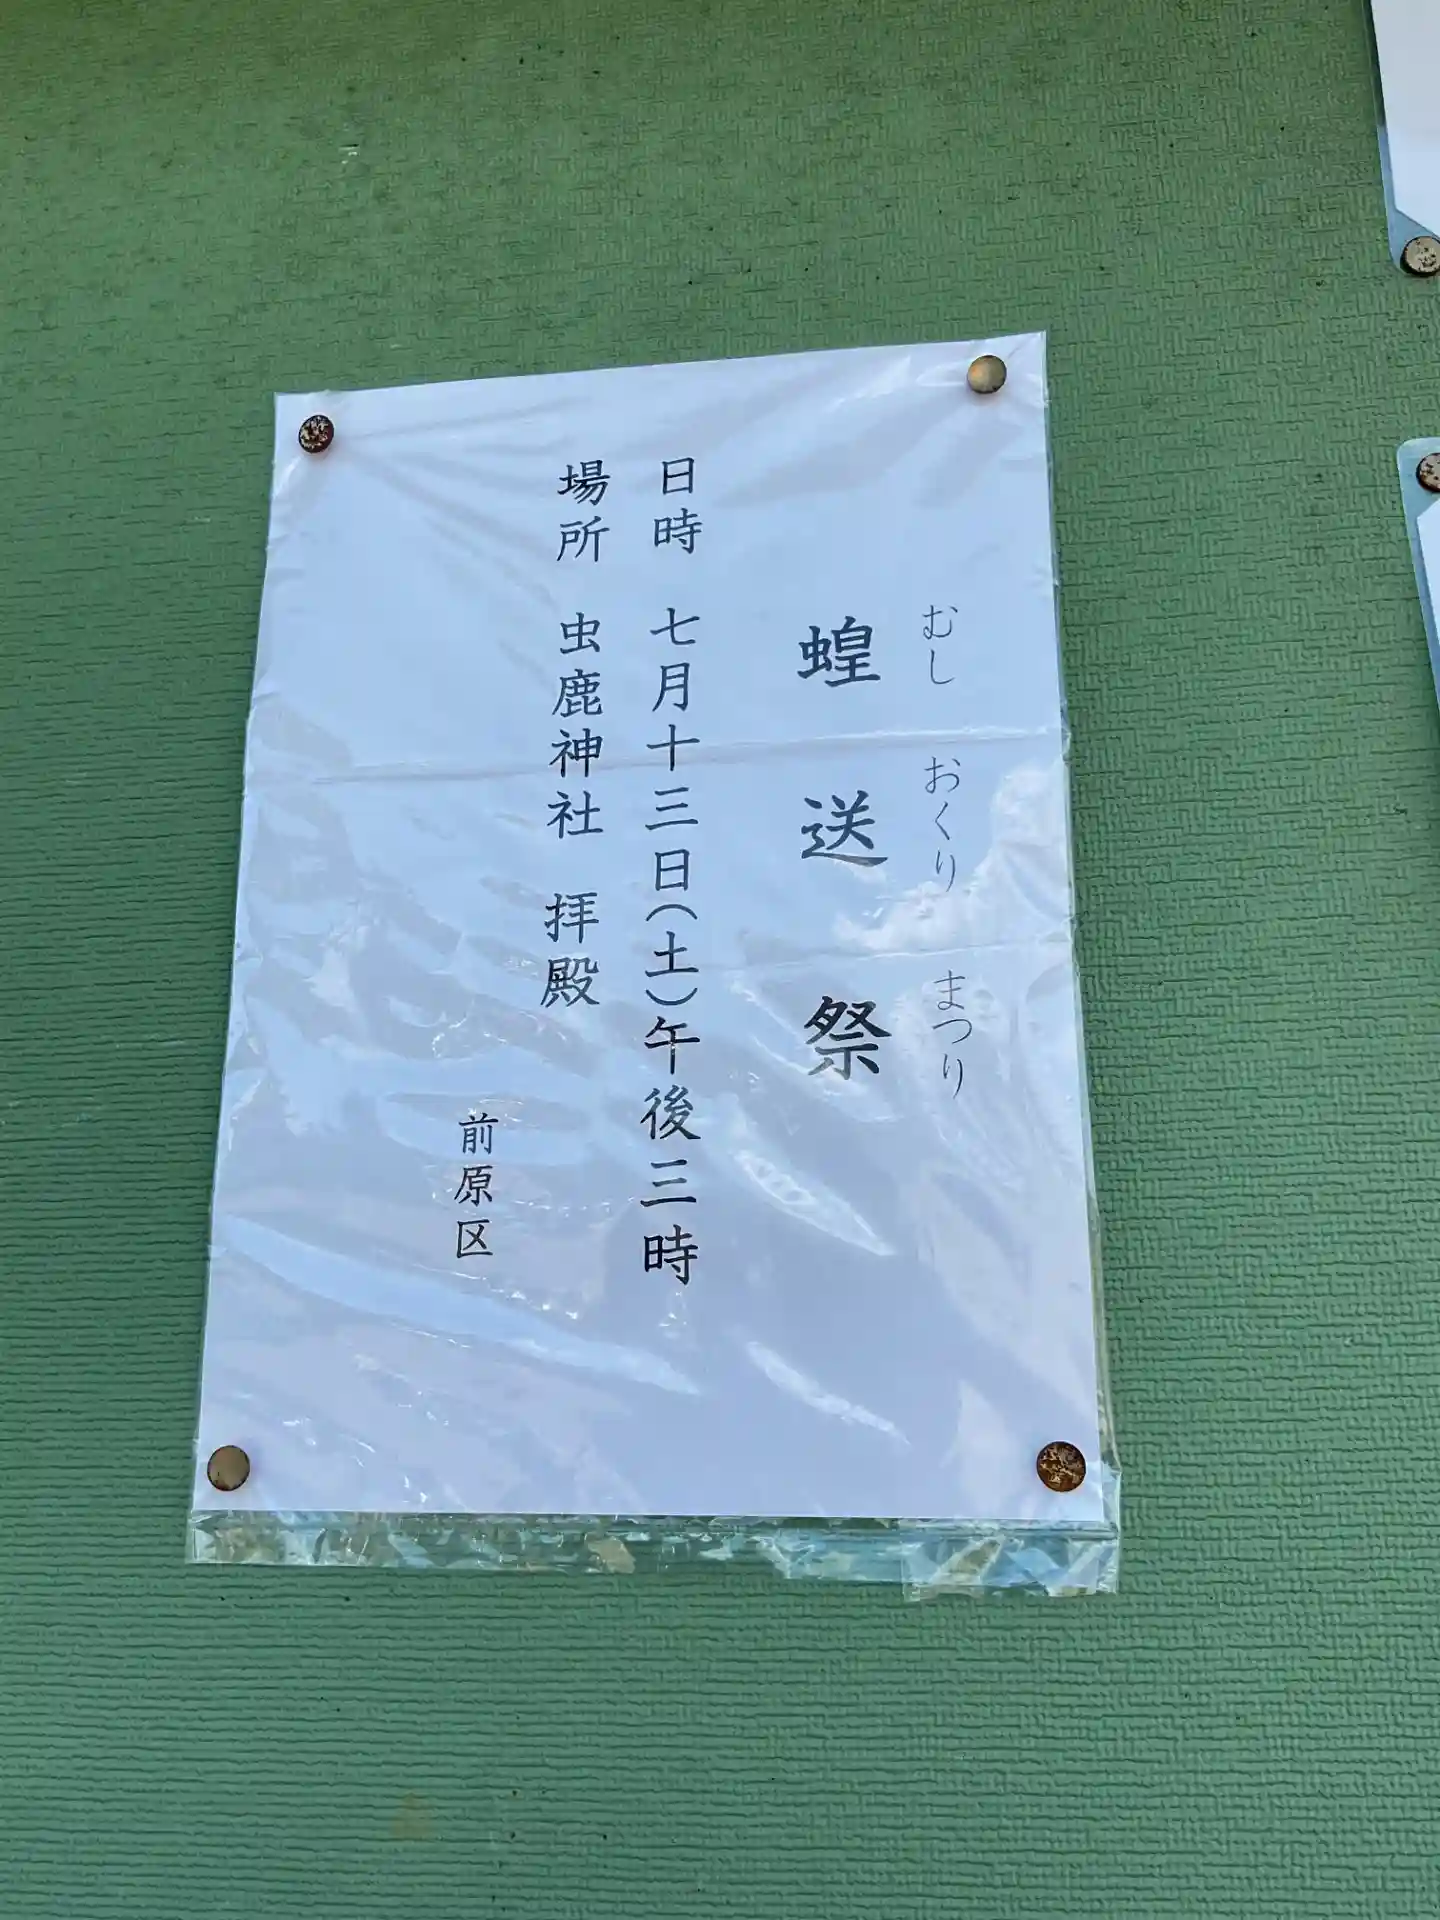 むし おくり まつり
蝗送祭
日時 七月十三日(土)午後三時
場所 虫鹿神社 拝殿
前原区